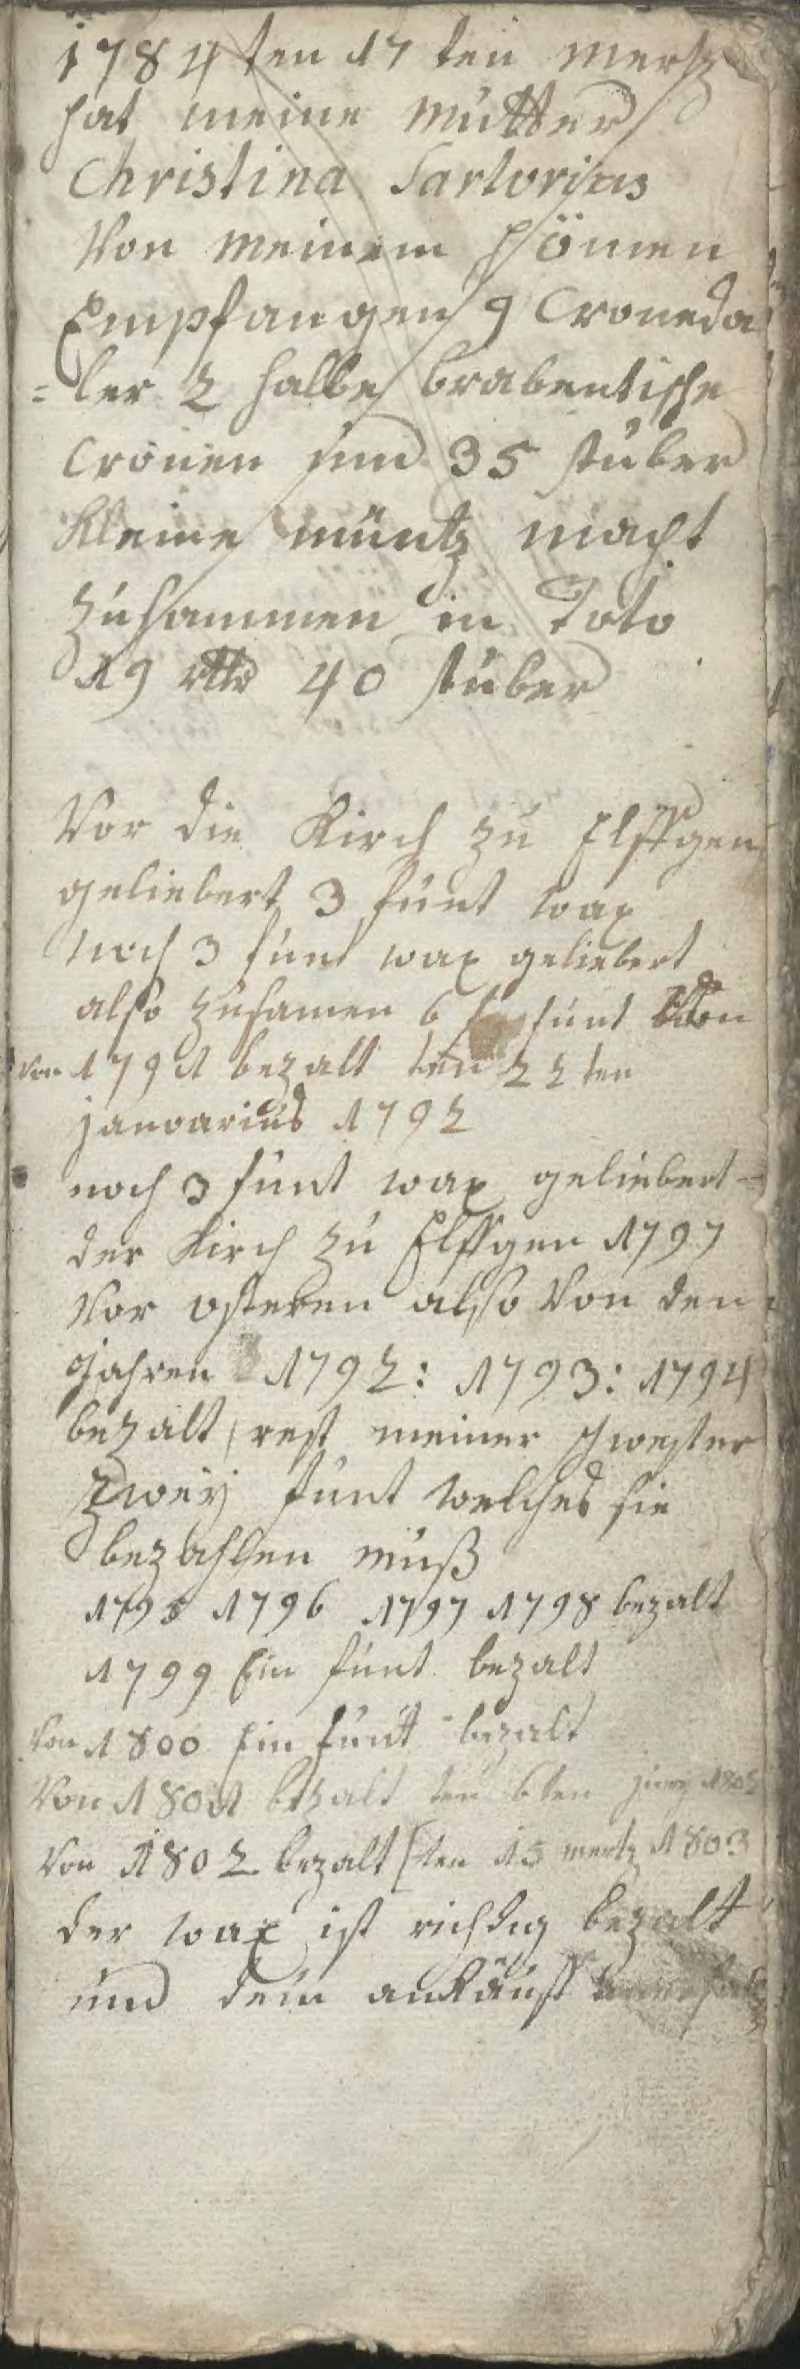 1784 ten 17 ten Mertz
hat meine Mutter
Christina Sartorius
Von meinem
Empfangen 9 Croneda
=ler 2 halbe brabentische
Cronen und 35 stuber
kleine müntz macht
Zusammen in Toto
19 rtlr 40 stuber
Vor die Kirch zu Elffgen
geliebert 3 funt wax
noch 3 funt wax geliebert
also zusamen 6 funt
von 1791 bezalt ten 22 ten
janoarius 1792
noch 3 funt wax geliebert
der Kirch zu Elffgen 1797
Vor osteren also Von den
Jahren 1792: 1793: 1794
bezalt rest meiner schwester
zweÿ funt welches sie
bezahlen muß
1795 1796 1797 1798 bezalt
1799 Ein funt bezalt
Von 1800 Ein funt bezalt
Von 1801 bezalt ten 6ten 1802
Von 1802 bezalt ten 15 mertz 1803
der wax ist richtig bezalt
und dem ankäuff